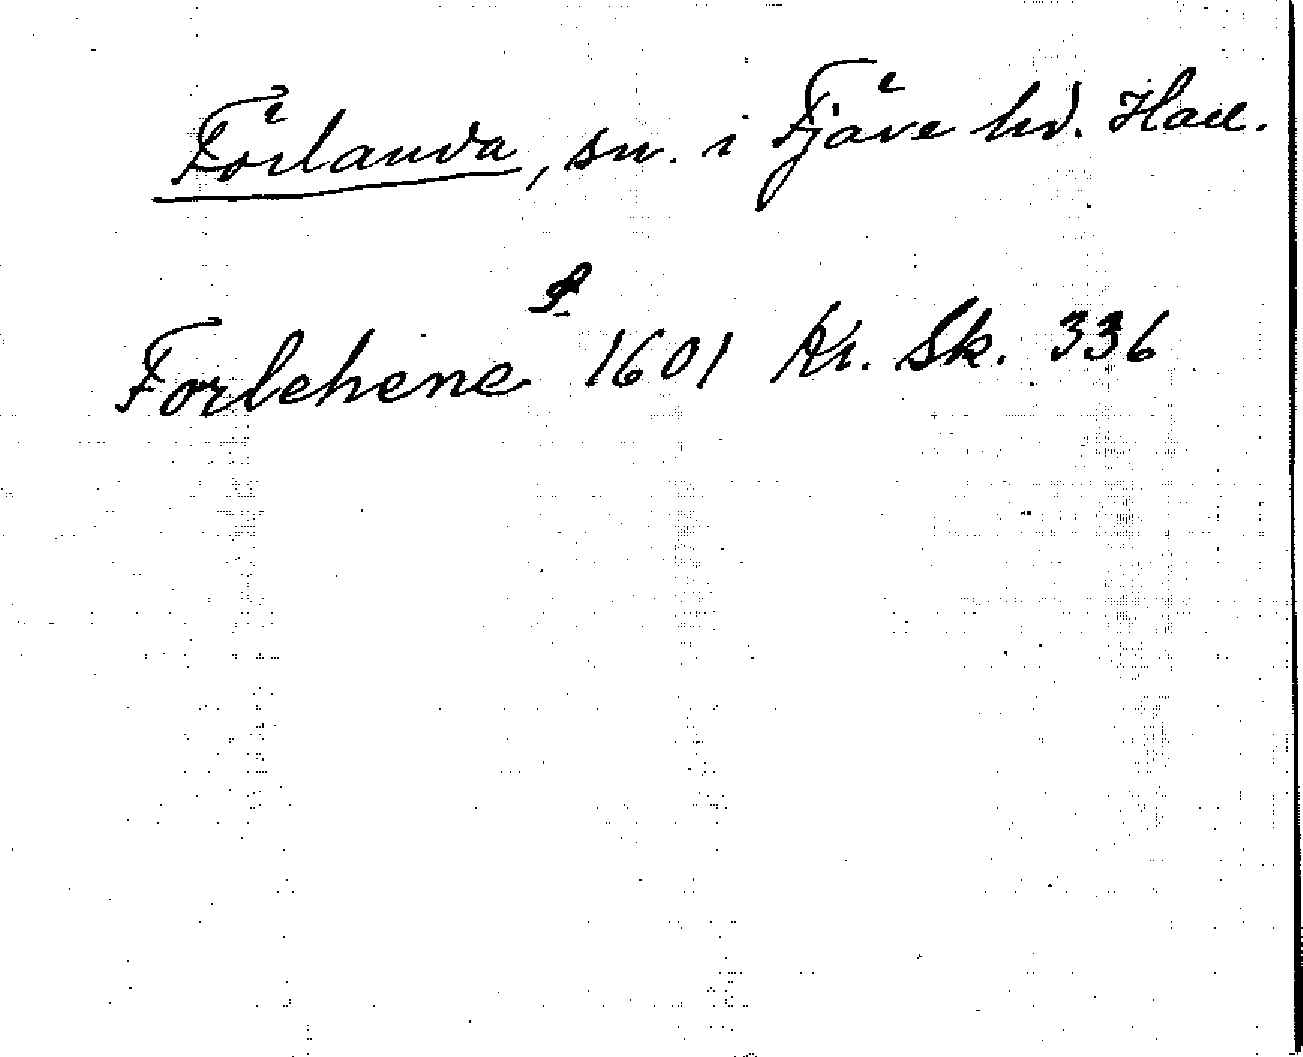 Förlanda, sn. i Fjäre hd. Hall.
Forlehene S 1601 Kr. Sk. 336